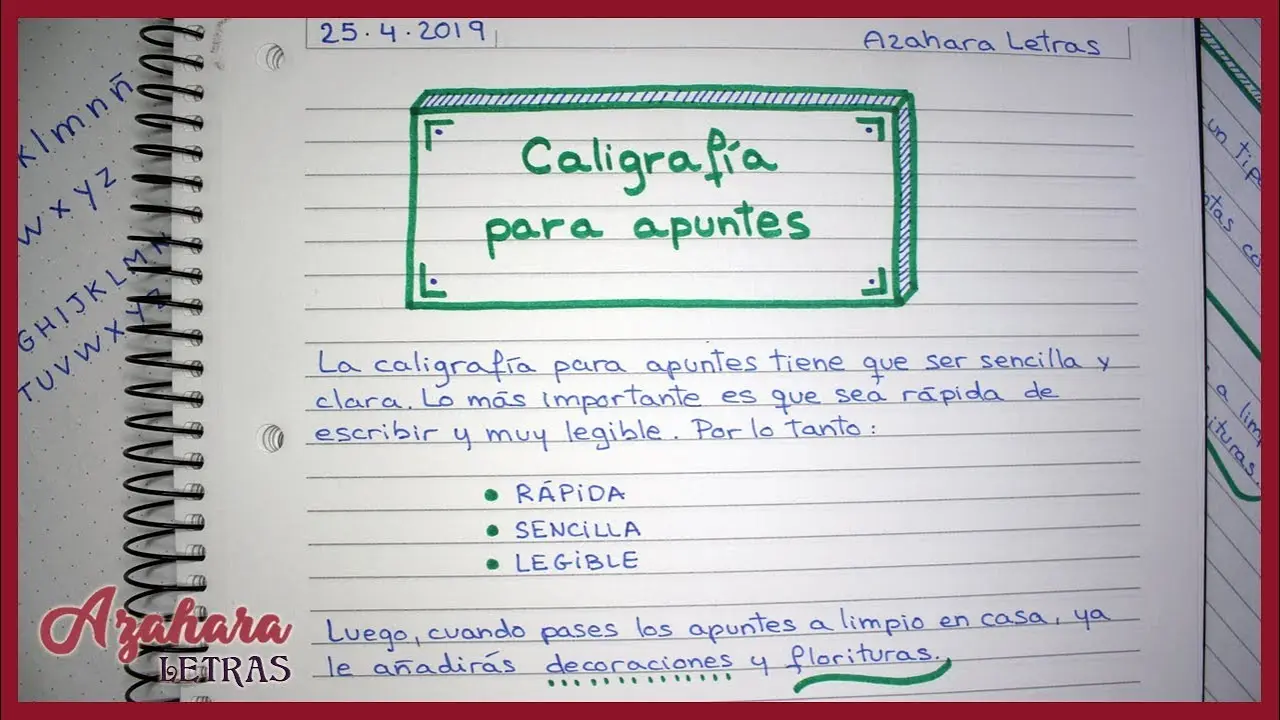 25.4.2019
Azahara Letras
Caligrafía
para apuntes
La caligrafía para apuntes tiene que ser sencilla y
clara. Lo más importante es que sea rápida de
escribir y muy legible. Por lo tanto:
• RÁPiDA
• SENCiLLA
• LEGiBLE
Luego, cuando pases los apuntes a limpio en casa, ya
le añadirás decoraciones y florituras.
k l m n ñ
w x y z
G H I J K L M N
T U V W X Y Z
un tipo
a limp
Azahara
LETRAS